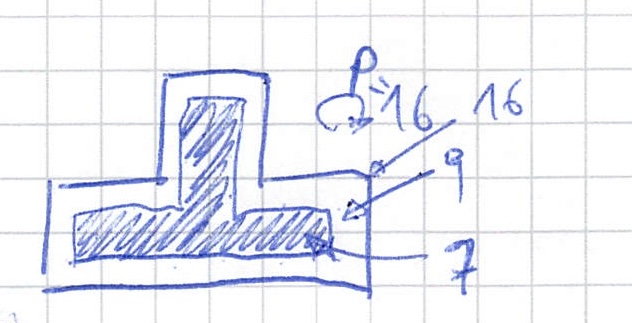 16 16
9
7